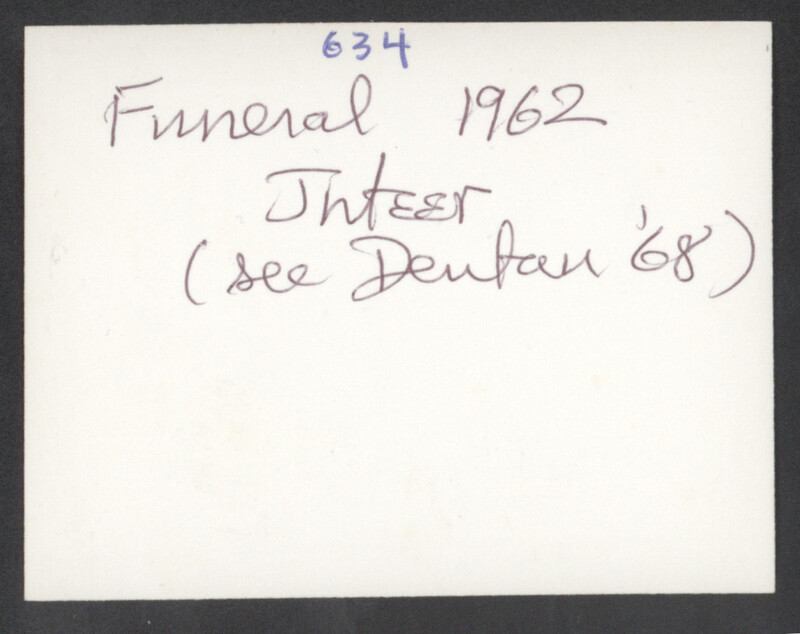 634
Funeral 1962
Jntɛɛr
(see Dentan '68)